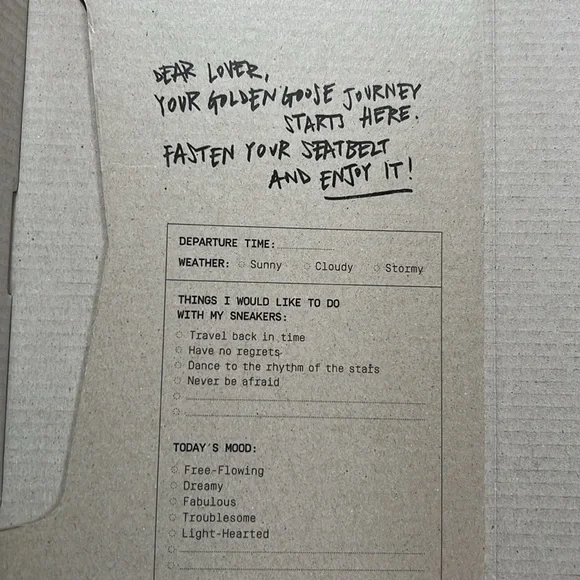 DEAR LOVER,
YOUR GOLDEN GOOSE JOURNEY
STARTS HERE.
FASTEN YOUR SEATBELT
AND ENJOY IT!
DEPARTURE TIME:
WEATHER: Sunny Cloudy Stormy
THINGS I WOULD LIKE TO DO
WITH MY SNEAKERS:
Travel back in time
Have no regrets
Dance to the rhythm of the stars
Never be afraid
TODAY'S MOOD:
Free-Flowing
Dreamy
Fabulous
Troublesome
Light-Hearted